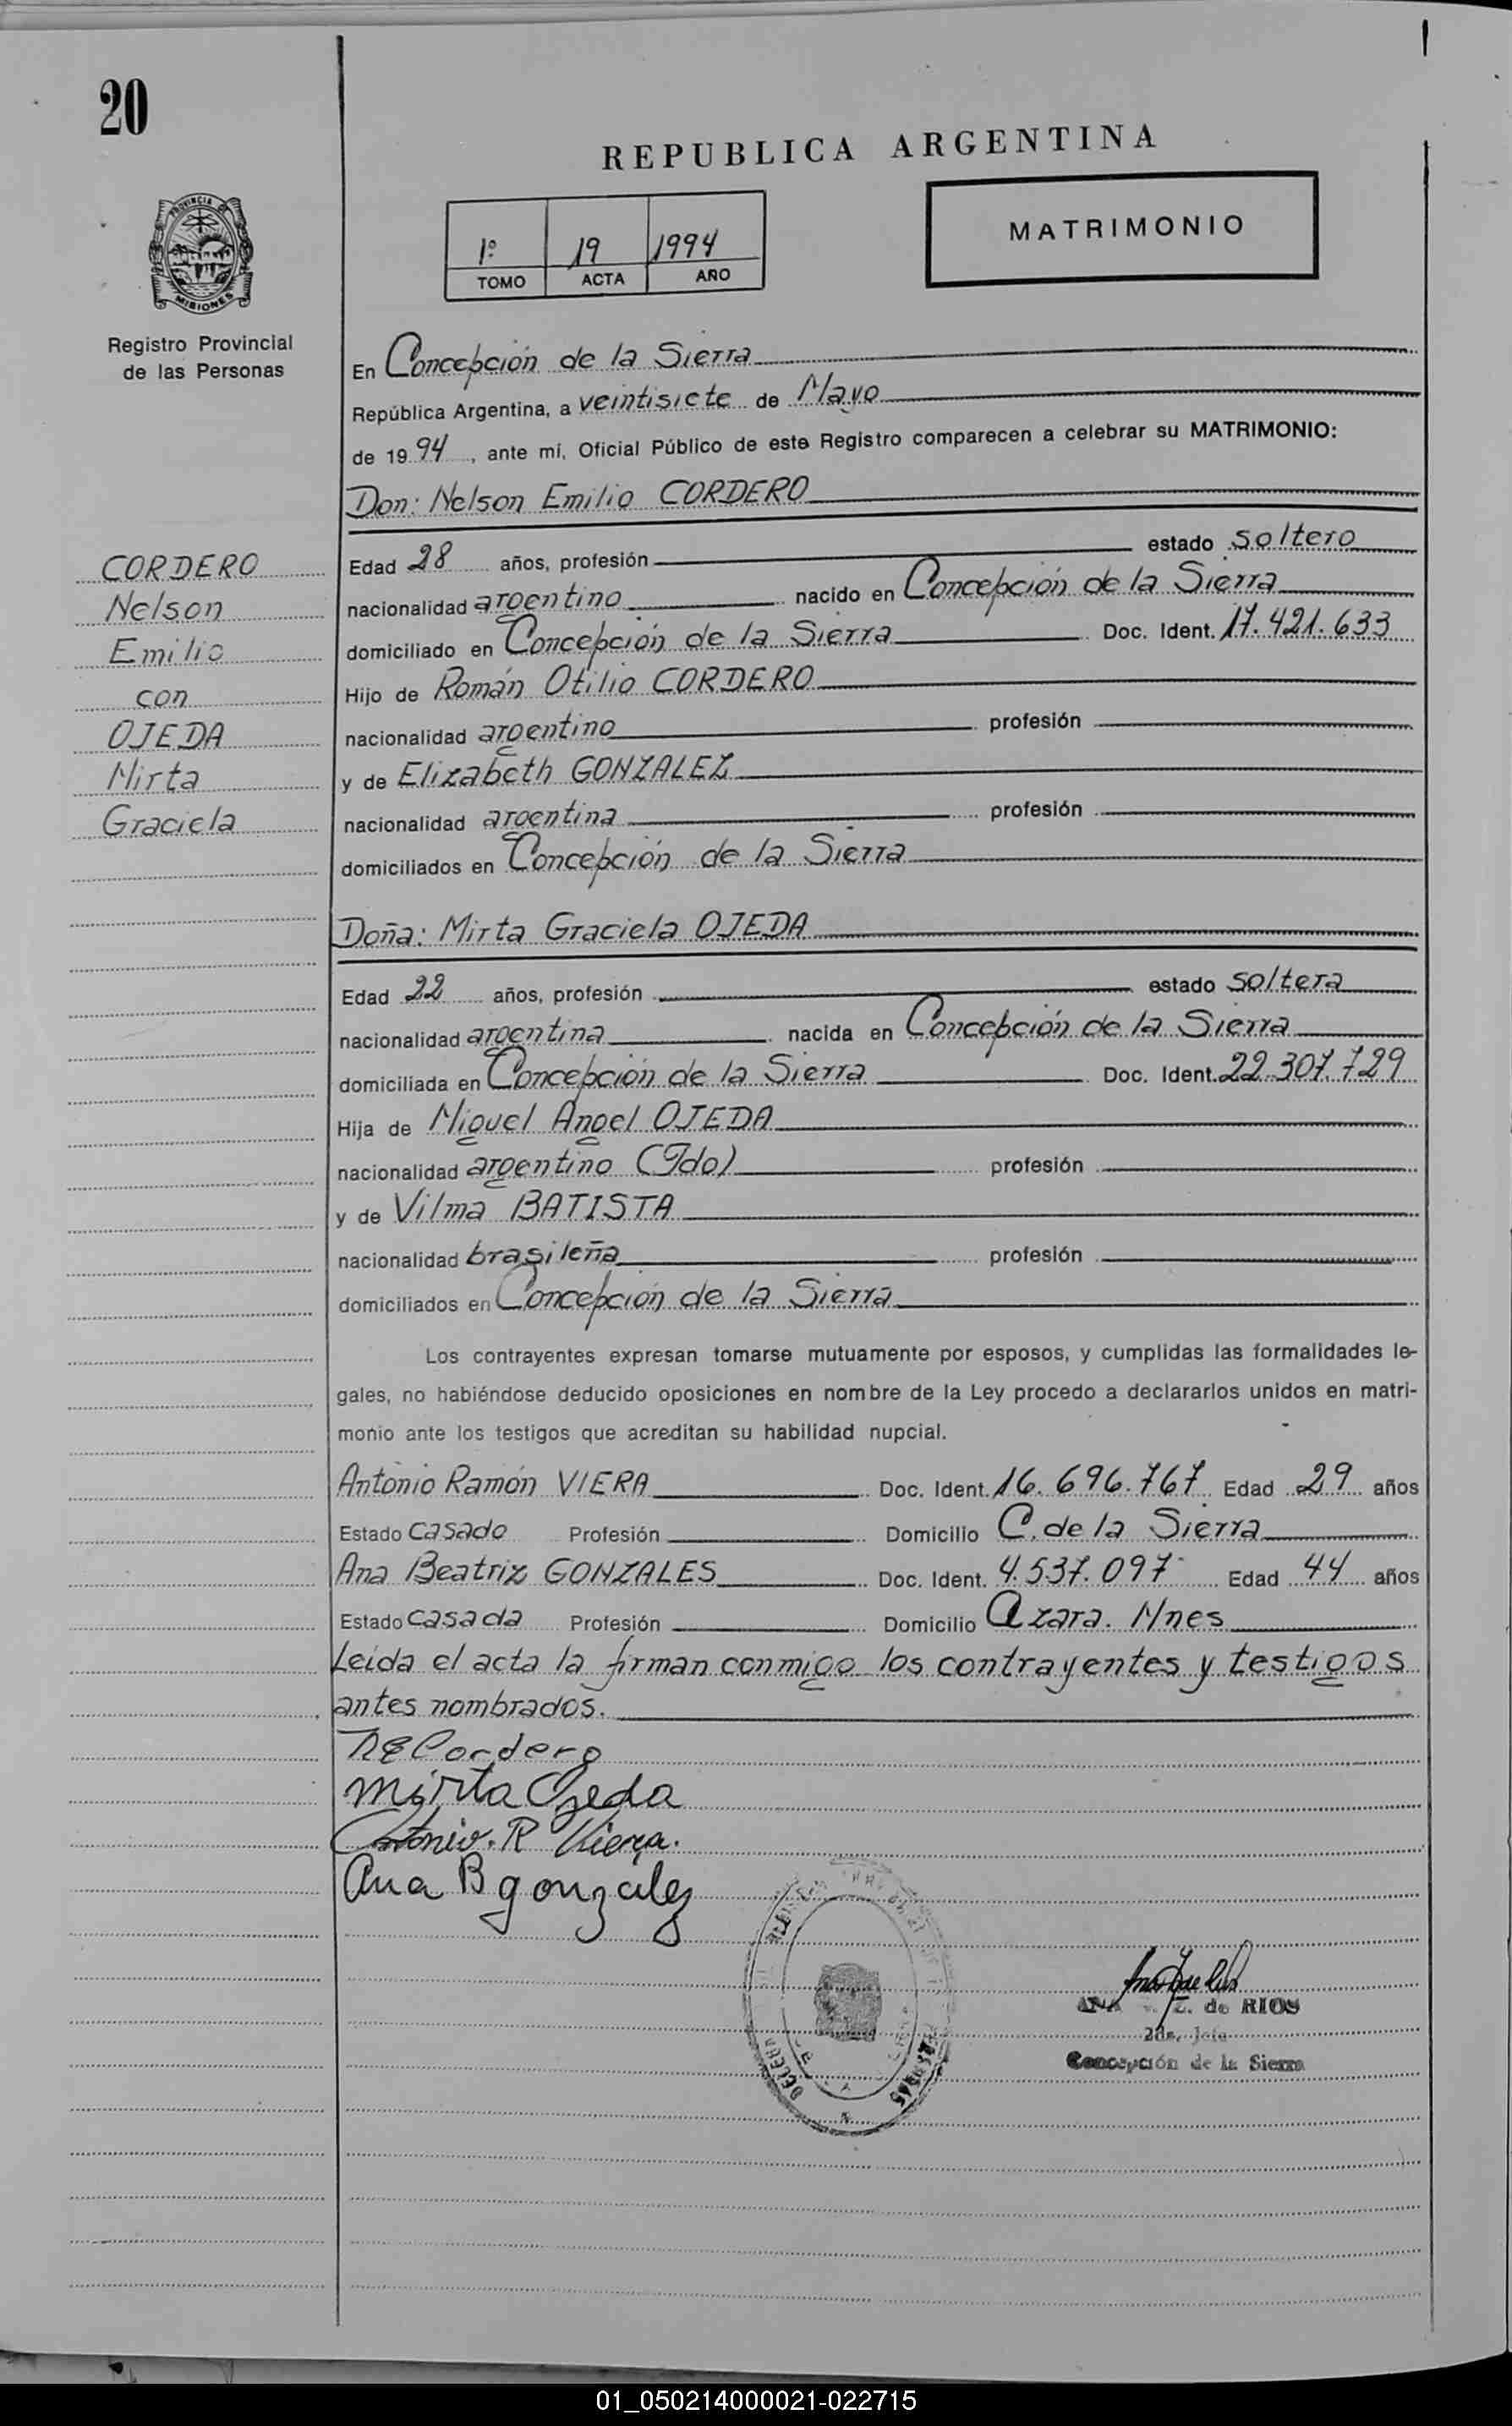 20
REPUBLICA ARGENTINA
PROVINCIA DE
MISIONES
1º 19 1994
TOMO ACTA AÑO
MATRIMONIO
Registro Provincial
de las Personas
En Concepción de la Sierra
República Argentina, a veintisiete de Mayo
de 1994, ante mí, Oficial Público de este Registro comparecen a celebrar su MATRIMONIO:
Don: Nelson Emilio CORDERO
CORDERO
Nelson
Emilio
con
OJEDA
Mirta
Graciela
Edad 28 años, profesión estado soltero
nacionalidad argentino nacido en Concepción de la Sierra
domiciliado en Concepción de la Sierra Doc. Ident. 17.421.633
Hijo de Román Otilio CORDERO
nacionalidad argentino profesión
y de Elizabeth GONZALEZ
nacionalidad argentina profesión
domiciliados en Concepción de la Sierra
Doña: Mirta Graciela OJEDA
Edad 22 años, profesión estado soltera
nacionalidad argentina nacida en Concepción de la Sierra
domiciliada en Concepción de la Sierra Doc. Ident. 22.307.729
Hija de Miguel Angel OJEDA
nacionalidad argentino (Fdo) profesión
y de Vilma BATISTA
nacionalidad brasileña profesión
domiciliados en Concepción de la Sierra
Los contrayentes expresan tomarse mutuamente por esposos, y cumplidas las formalidades le-
gales, no habiéndose deducido oposiciones en nombre de la Ley procedo a declararlos unidos en matri-
monio ante los testigos que acreditan su habilidad nupcial.
Antonio Ramón VIERA Doc. Ident. 16.696.767 Edad 29 años
Estado casado Profesión Domicilio C. de la Sierra
Ana Beatriz GONZALES Doc. Ident. 4.537.097 Edad 44 años
Estado casada Profesión Domicilio Azara. Mnes
Leída el acta la firman conmigo los contrayentes y testigos
antes nombrados.
NECordero
Mirta Ojeda
Antonio. R Viera.
Ana B gonzales
de RIOS
2da. Jefa
Concepción de la Sierra
01_050214000021-022715